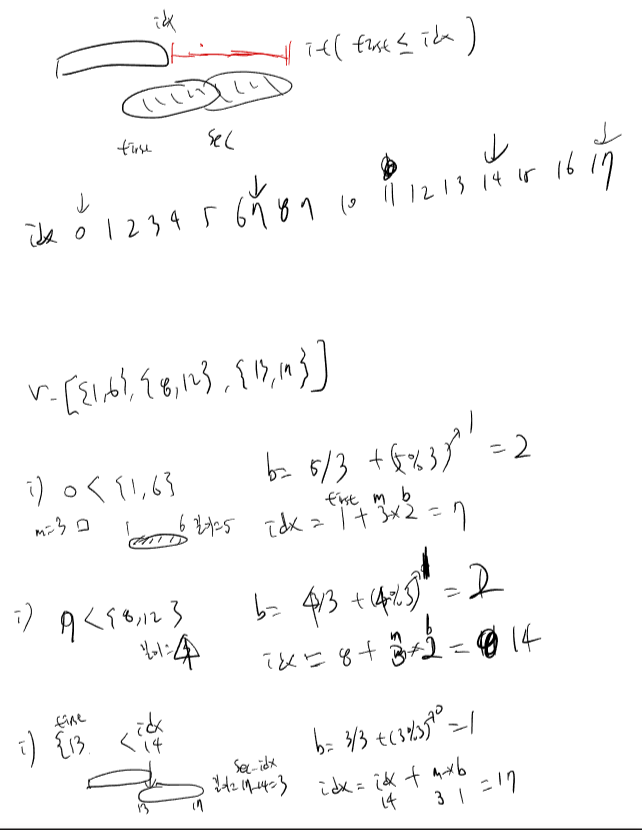 idx
if( first ≤ idx )
first sec
idx 0 1 2 3 4 5 6 7 8 9 10 11 12 13 14 15 16 17
v=[{1,6},{8,12},{13,17}]
i) 0<{1,6} b= 5/3 +(5%3)↗1 = 2
m=3 1 6 길이=5 first m b
idx = 1 + 3×2 = 7
i) 7<{8,12} b= 4/3 +(4%3)↗1 = 2
길이=4 m b
idx = 8 + 3×2 = 14
first idx
i) {13 < 14 b= 3/3 +(3%3)↗0 =1
sec-idx
길이=17-14=3 idx = idx + m×b =17
13 17 14 3 1